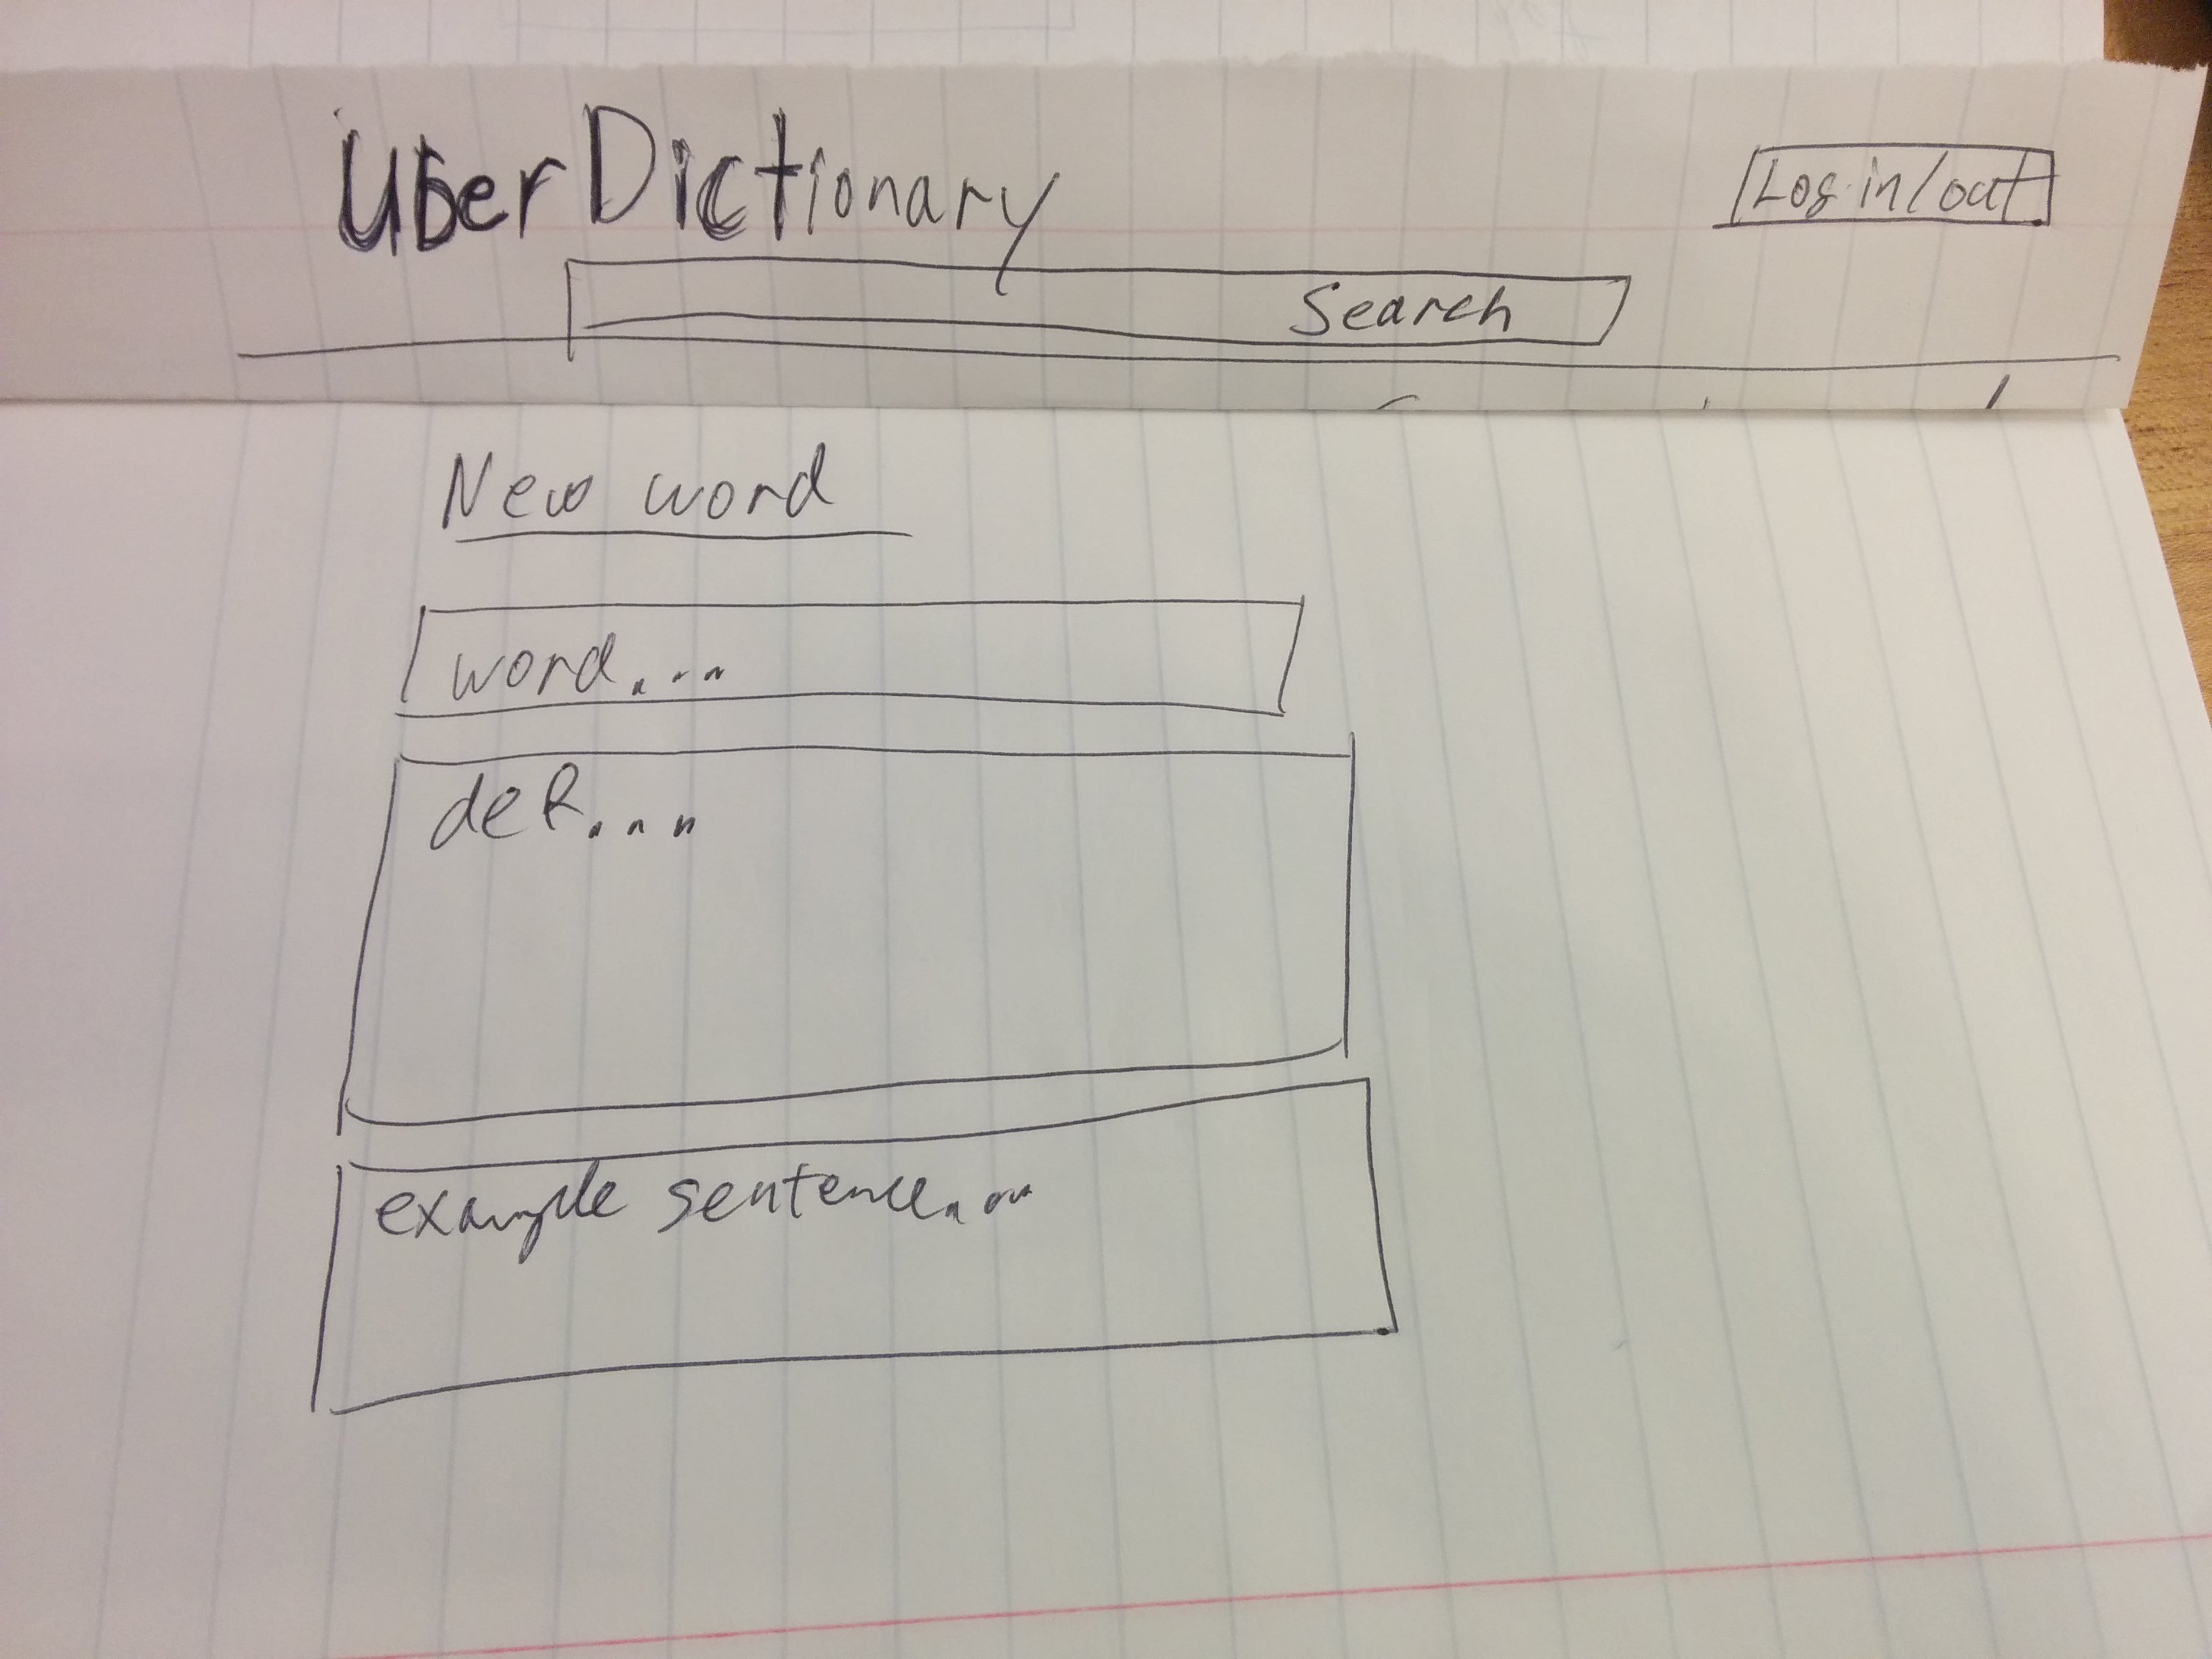 UberDictionary
Log in/out
Search
New word
word...
def...
example sentence...